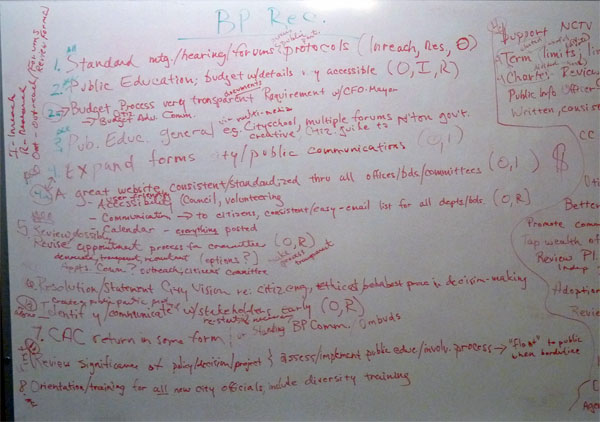 BP Rec.
I - Inreach
R - Research
Out - outreach/forums
1. Standard mtg./hearing/forums protocols (Inreach, Res, O)
2. Public Education; budget w/details accessible (O, I, R)
documents
Budget Process very transparent Requirement w/CFO-Mayor
→ Budget Adv. Comm.
multi-media
3. Pub. Educ. general e.g. City school, multiple forums N'ton govt.
creative citiz. guide to
4. Expand forms city/public communications (O, I)
A great website, consistent/standardized thru all offices/bds/committees (O, I)
user friendly
- Accessibility (council, volunteering
- Communication → to citizens, consistent/easy-email list for all depts/bds. (O, R)
- Calendar - everything posted
5. Review
Revise appointment process for committees (O, R)
make process transparent
(options?)
Appts. Comm? outreach, citizens committee
6. Resolution/statement City Vision re: citiz eng, ethics best prac in decision-making
Create public partic. plan
Identify/communicate w/stakeholders early (O, R)
7. CAC return in some form; or Standing BP Comm. Ombuds
Review significance of policy/decision/project } assess/implement public educ/involv. process → "float" to public when
8. Orientation/training for all new city officials, include diversity training
Support NCTV
Term limits
Charter Review
Public Info Officer
Written, consiste
CC
$
Better
Promote commu
Tap wealth of
Review Pl.
Adoption
Review
Agen